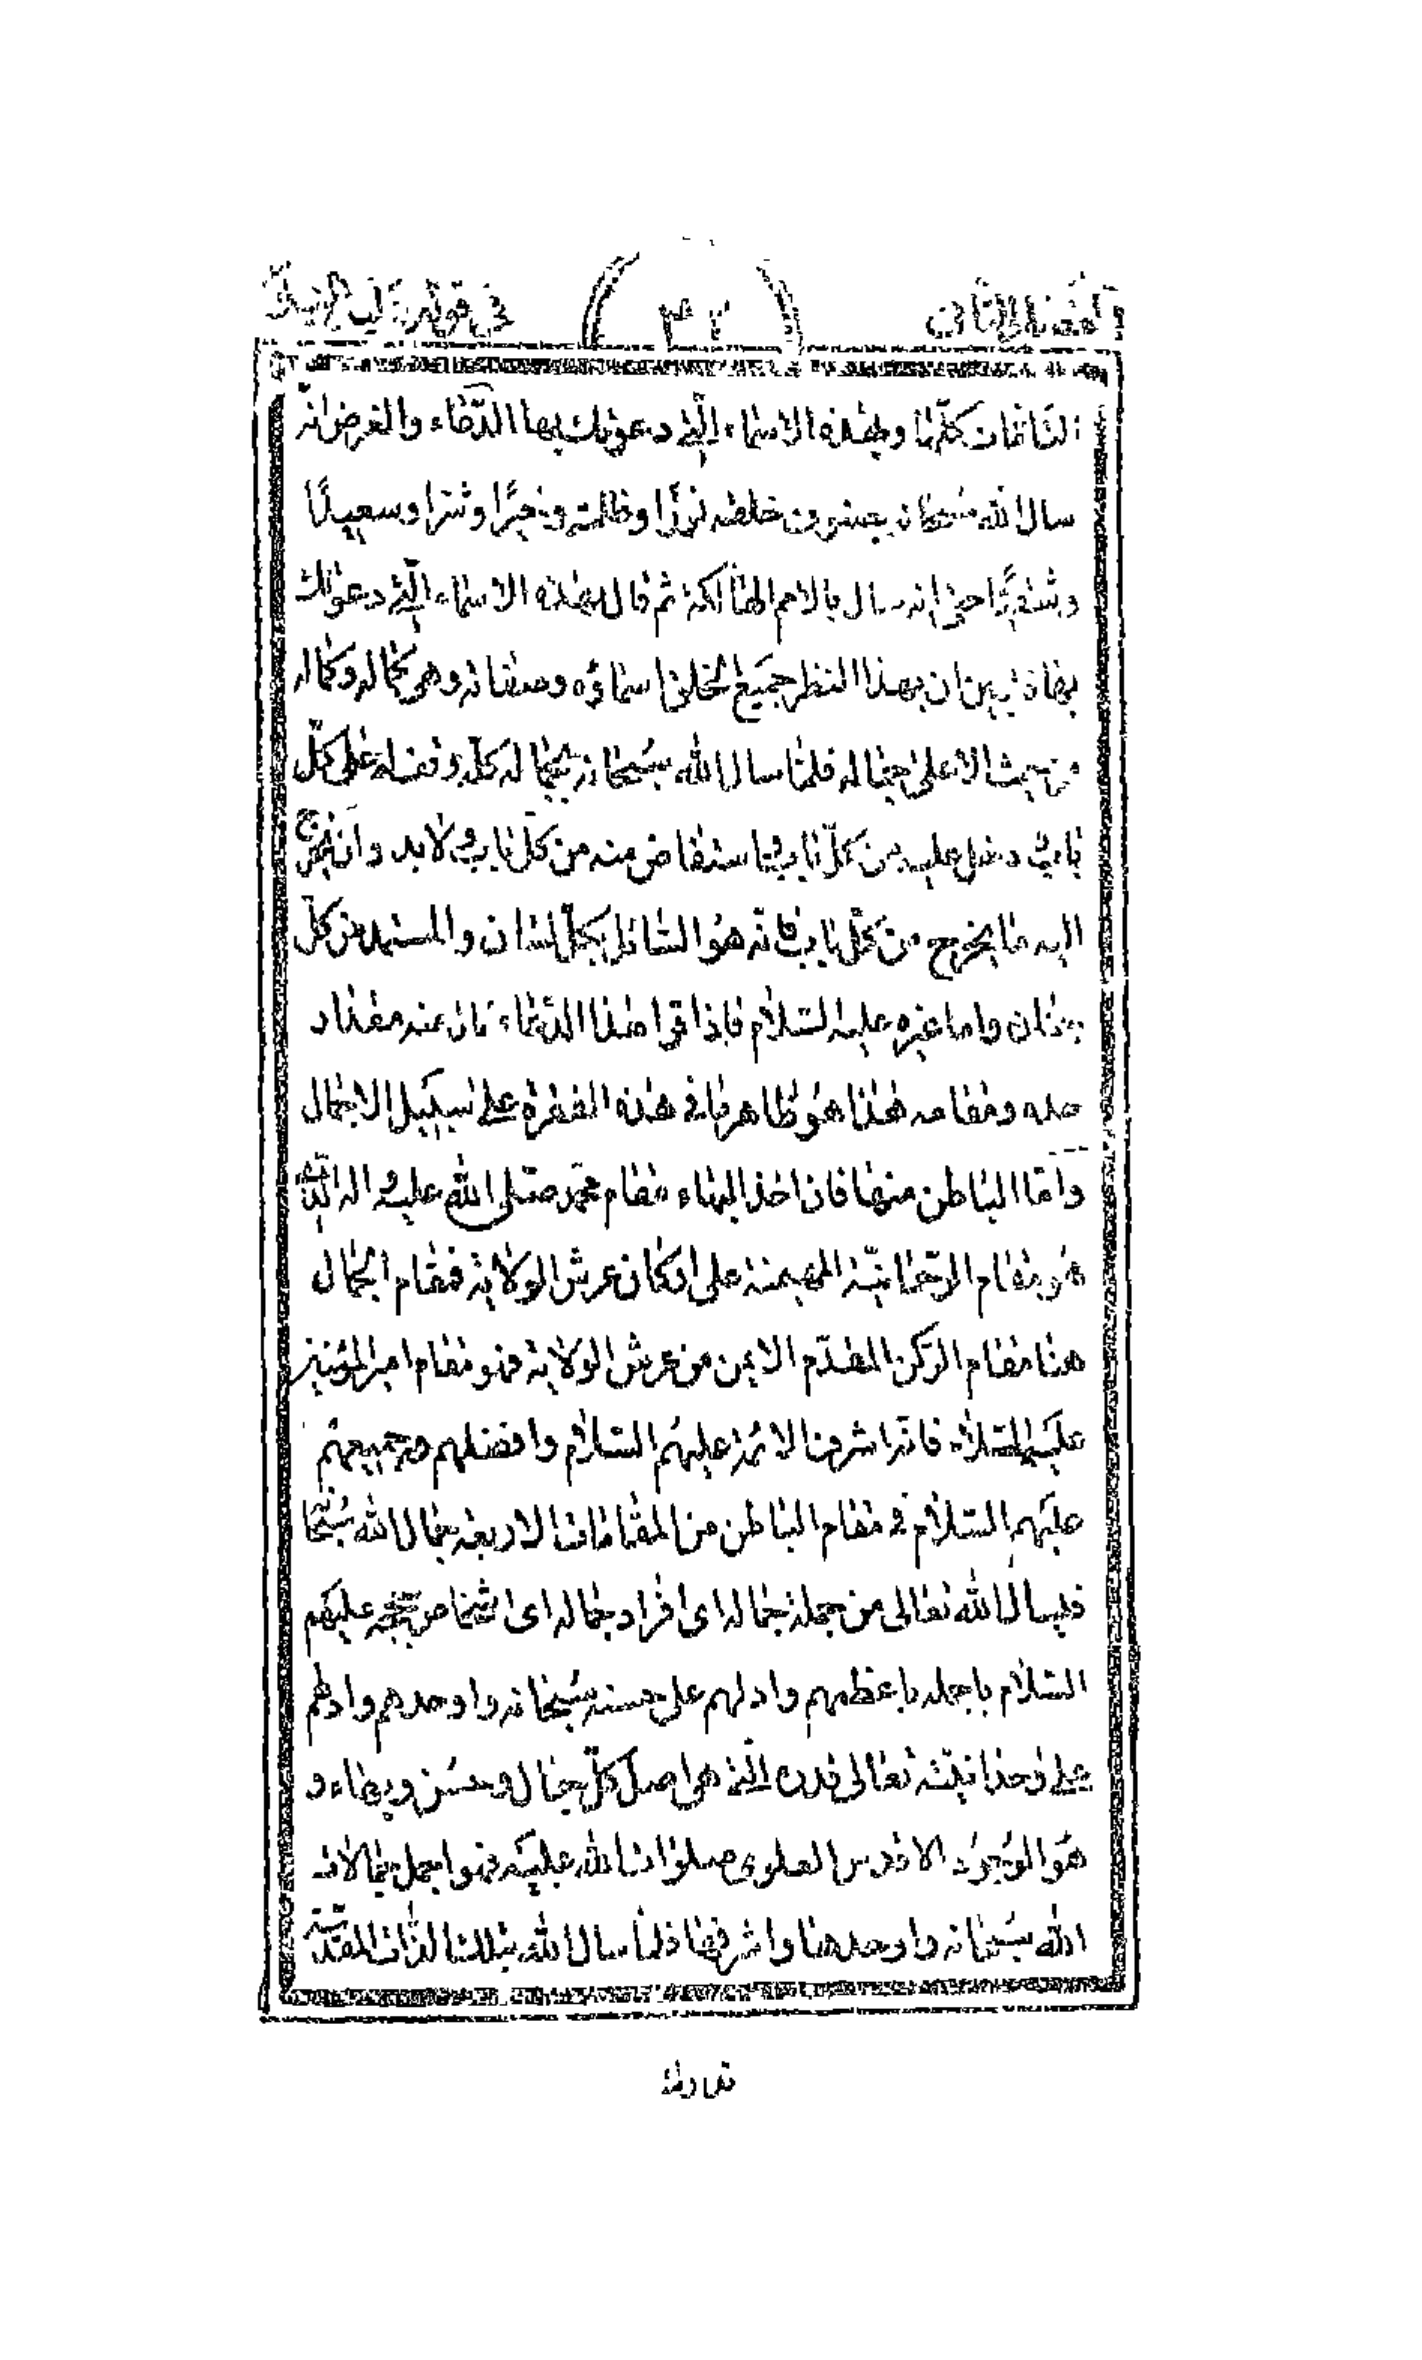 الفصل الثاني
٤٢
في قوله
التامات كلها وبهذه الاسماء التي دعوتك بها الدعاء والغرض انه
سال الله سبحانه بجميع خلقه نورا وظلمة وخيرا وشرا وسعيدا
وشقيا حتى انه سال بالامم الهالكة ثم قال بهذه الاسماء التي دعوتك
بها فتبين ان بهذا النظر جميع الخلق اسماؤه وصفاته وهي جماله وكماله
من حيث الاعلى جماله فلما سال الله سبحانه بجماله كله وقف له على كل
باب ودخل عليه من كل باب واستفاض منه من كل باب ولابد وان يخرج
اليه ما يخرج من كل باب فانه هو السائل بكل لسان والمستمد من كل
جنان واما غيره عليه السلام فاذا قرا هذا الدعاء فان عنه مقدار
حده ومقامه هذا هو ظاهر ما في هذه الفقرة على سبيل الاجمال
واما الباطن منها فاذا اخذ البهاء مقام محمد صلى الله عليه واله الذي
هو مقام الرحمانية المهيمنة على اركان عرش الولاية فمقام الجمال
هنا مقام الركن المقدم الايمن من عرش الولاية فهو مقام امير المؤمنين
عليه السلام فانه اشرف الائمة عليهم السلام وافضلهم من جميعهم
عليهم السلام في مقام الباطن من المقامات الاربعة جمال الله سبحا
فيسال الله تعالى من جملة جماله اي افراد جماله اي اشخاص حججه عليهم
السلام باجمله باعظمهم وادلهم على حسنه سبحانه واوحدهم وادلهم
على وحدانيته تعالى قدره التي هي اصل كل جمال وحسن وبهاء و
هو الوجود الاقدس العلوي صلوات الله عليه فهو اجمل جمالات
الله سبحانه واوحدها واشرفها فلما سال الله بتلك الذات المقدسة